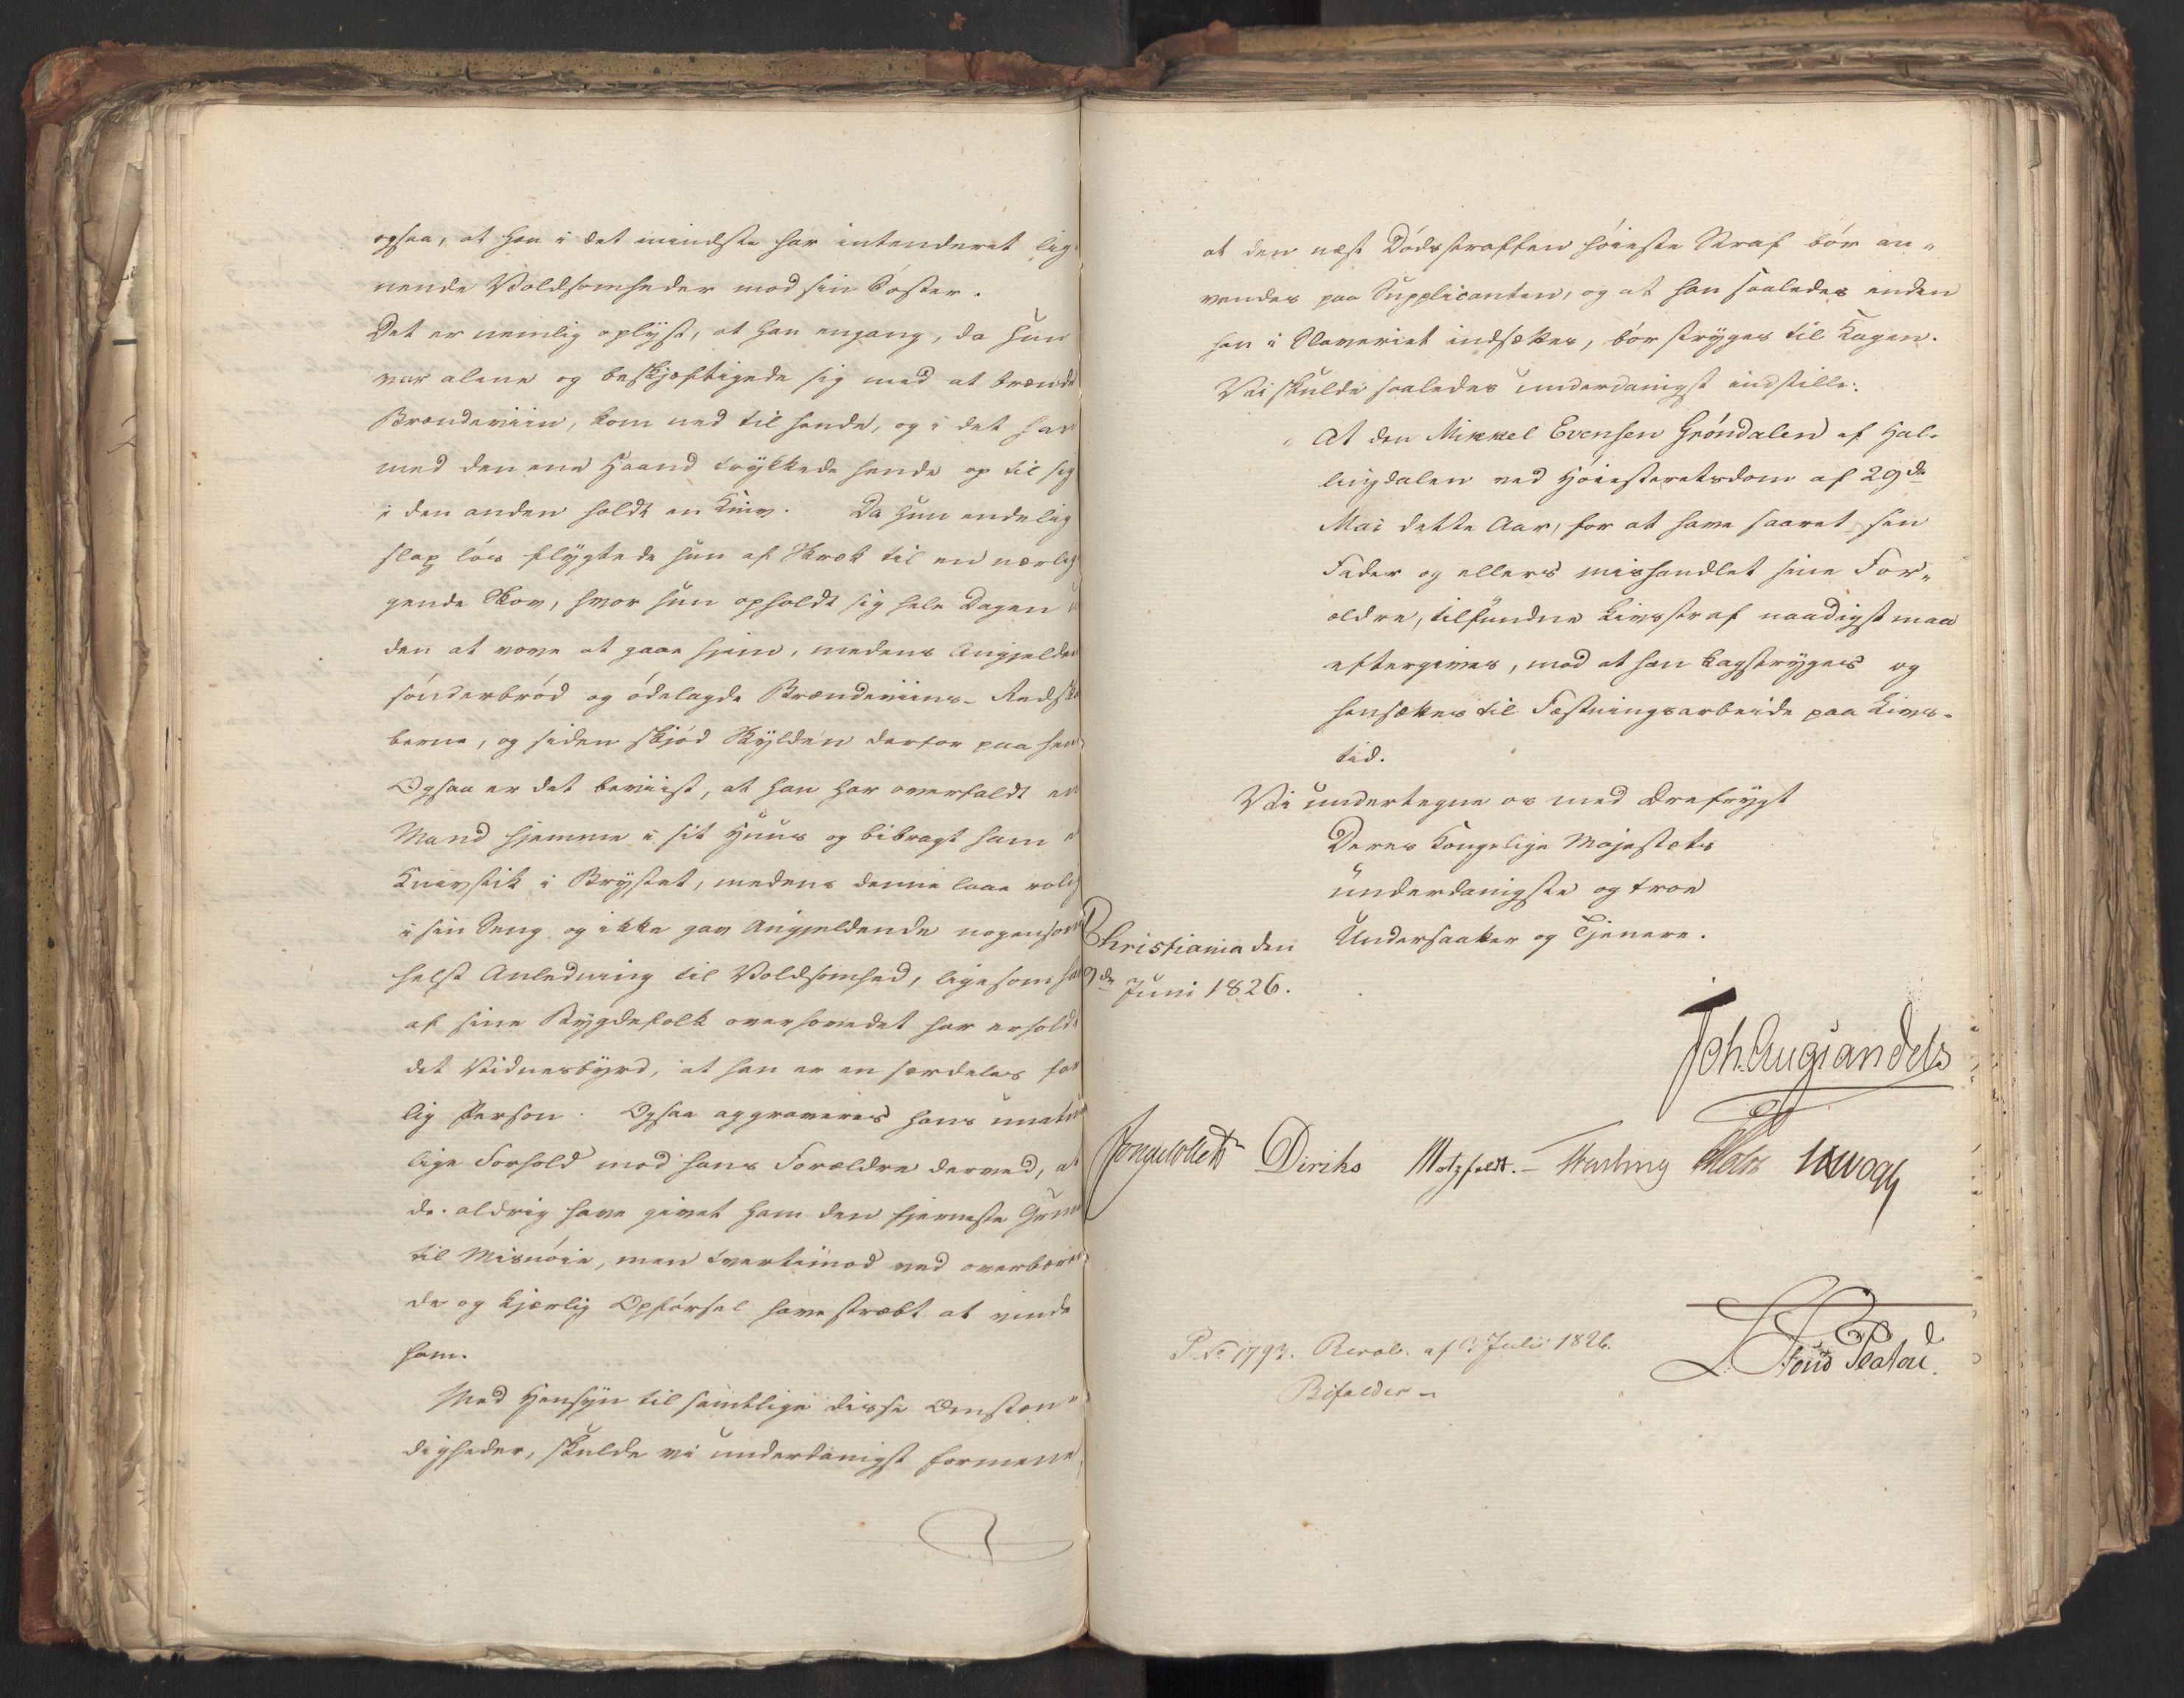 ogsaa, at han i det mindste har intenderet lig-
nende Voldsomheder mod sin Søster.
Det er nemlig oplyst, at han engang, da hun
var alene og beskjæftigede sig med at brænde
Brændeviin, kom ned til hende, og i det han
med den ene Haand trykkede hende op til sig
i den anden holdt en Kniv. Da hun endelig
slap løs flygtede hun af Skræk til en nærlig-
gende Skov, hvor hun opholdt sig hele Dagen u
den at vove at gaae hjem, medens Angjelden
sønderbrød og ødelagde Brændeviins-Redska
berne, og siden skjød Skylden derfor paa hen
Ogsaa er det beviist, at han har overfaldt en
Mand hjemme i sit Huus og bibragt ham e
Knivstik i Brystet, medens denne laae rolig
i sin Seng og ikke gav Angjeldende nogensom
helst Anledning til Voldsomhed, ligesom han
af sine Bygdefolk overhovedet har erholdt
det Vidnesbyrd, at han er en særdeles far
lig Person. Ogsaa aggraveres hans unatur
lige Forhold mod hans Forældre derved, at
de aldrig have givet ham den fjerneste Grund
til Misnøie, men tvertimod ved overbæren
de og kjærlig Opførsel have stræbt at vinde
ham.
Med Hensyn til samtlige disse Omstæn-
digheder, skulde vi underdanigst formene,
at den næst Dødsstraffen høieste Straf bør an-
vendes paa Supplicanten, og at han saaledes inden
han i Slaveriet indsættes, bør stryges til Kagen.
Vi skulde saaledes underdanigst indstille:
At den Mikkel Evensen Grøndalen af Hal-
lingdalen ved Høiesteretsdom af 29de
Mai dette Aar, for at have saaret sin
Fader og ellers mishandlet sine For-
ældre, tilfundne Livsstraf naadigst maa
eftergives, mod at han kagstryges og
hensættes til Fæstningsarbeide paa Livs-
tid.
Vi undertegne os med Ærefrygt
Deres Kongelige Majestæts
underdanigste og troe
Undersaatter og Tjenere.
Christiania den
9de Juni 1826.
Joh. Aug. Sandels
Jonas Collett Diriks Motzfeldt. Treschow Holst Vogt
P. No 1793. Resol. af 3 Juli 1826.
Bifaldes
Stoud Platou